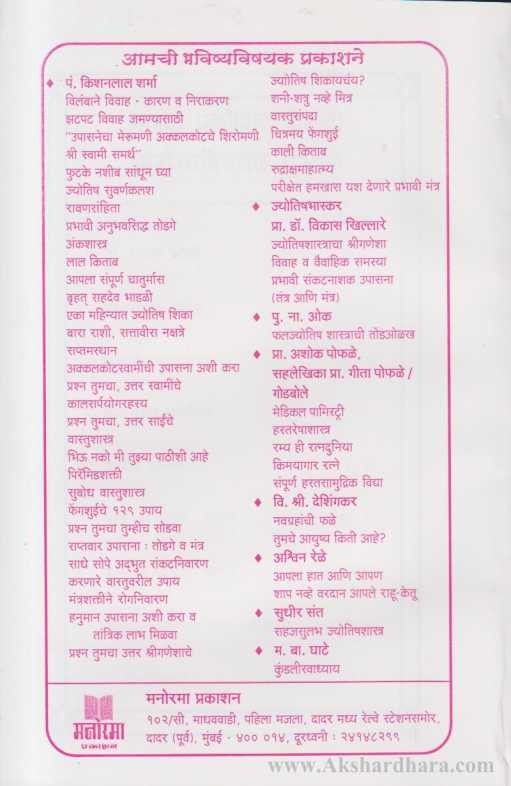 आमची भविष्यविषयक प्रकाशने
♦ पं. किशनलाल शर्मा
विलंबाने विवाह - कारण व निराकरण
झटपट विवाह जमण्यासाठी
"उपासनेचा मेरूमणी अक्कलकोटचे शिरोमणी
श्री स्वामी समर्थ"
फुटके नशीब सांधून घ्या
ज्योतिष सुवर्णकलश
रावणसंहिता
प्रभावी अनुभवसिद्ध तोडगे
अंकशास्त्र
लाल किताब
आपला संपूर्ण चातुर्मास
बृहत् राहदेव भाडळी
एका महिन्यात ज्योतिष शिका
बारा राशी, सत्तावीस नक्षत्रे
सप्तमस्थान
अक्कलकोटस्वामींची उपासना अशी करा
प्रश्न तुमचा, उत्तर स्वामींचे
कालसर्पयोगरहस्य
प्रश्न तुमचा, उत्तर साईंचे
वास्तुशास्त्र
भिऊ नको मी तुझ्या पाठीशी आहे
पिरॅमिडशक्ती
सुबोध वास्तुशास्त्र
फेंगशुईचे १२९ उपाय
प्रश्न तुमचा तुम्हीच सोडवा
सप्तवार उपासना : तोडगे व मंत्र
साधे सोपे अद्भुत संकटनिवारण
करणारे वास्तुवरील उपाय
मंत्रशक्तीने रोगनिवारण
हनुमान उपासना अशी करा व
तांत्रिक लाभ मिळवा
प्रश्न तुमचा उत्तर श्रीगणेशाचे
ज्योतिष शिकायचंय?
शनी-शत्रु नव्हे मित्र
वास्तुसंपदा
चित्रमय फेंगशुई
काली किताब
रुद्राक्षमाहात्म्य
परीक्षेत हमखास यश देणारे प्रभावी मंत्र
♦ ज्योतिषभास्कर
प्रा. डॉ. विकास खिल्लारे
ज्योतिषशास्त्राचा श्रीगणेशा
विवाह व वैवाहिक समस्या
प्रभावी संकटनाशक उपासना
(तंत्र आणि मंत्र)
♦ पु. ना. ओक
फलज्योतिष शास्त्राची तोंडओळख
♦ प्रा. अशोक पोफळे,
सहलेखिका प्रा. गीता पोफळे /
गोडबोले
मेडिकल पामिस्ट्री
हस्तरेषाशास्त्र
रम्य ही रत्नदुनिया
किमयागार रत्ने
संपूर्ण हस्तसामुद्रिक विद्या
♦ वि. श्री. देशिंगकर
नवग्रहांची फळे
तुमचे आयुष्य किती आहे?
♦ अश्विन रेळे
आपला हात आणि आपण
शाप नव्हे वरदान आपले राहू-केतू
♦ सुधीर संत
सहजसुलभ ज्योतिषशास्त्र
♦ म. बा. घाटे
कुंडलीस्वाध्याय
मनोरमा
प्रकाशन
मनोरमा प्रकाशन
१०२/सी, माधववाडी, पहिला मजला, दादर मध्य रेल्वे स्टेशनसमोर,
दादर (पूर्व), मुंबई - ४०० ०१४, दूरध्वनी : २४१४८२९९
www.Akshardhara.com